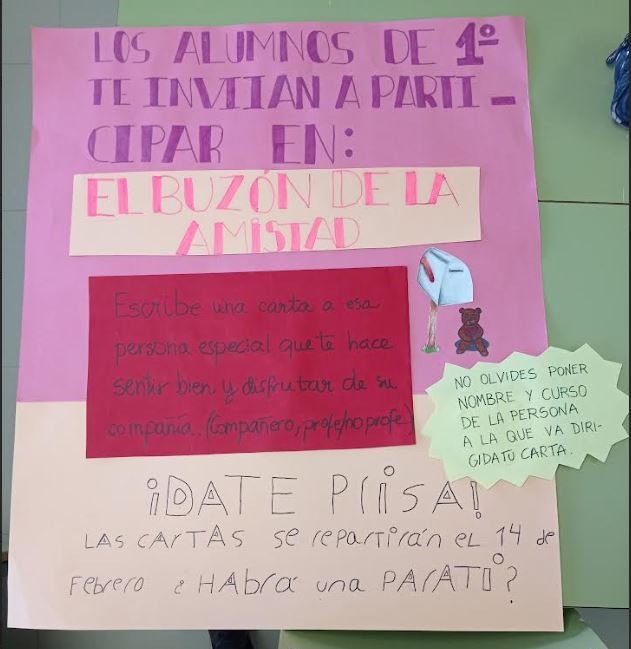 LOS ALUMNOS DE 1º
TE INVITAN A PARTI-
CIPAR EN:
EL BUZÓN DE LA
AMISTAD
Escribe una carta a esa
persona especial que te hace
sentir bien y disfrutar de su
compañía. (Compañero, profe/no profe)
NO OLVIDES PONER
NOMBRE Y CURSO
DE LA PERSONA
A LA QUE VA DIRI-
GIDA TU CARTA.
¡DATE PRISA!
LAS CARTAS se repartirán EL 14 de
Febrero ¿HAbrá una PARA TI?